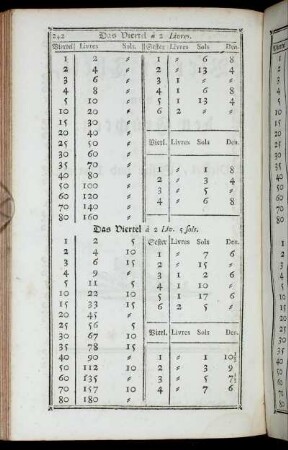 242 Das Viertel à 2 Livres.
Viertel Livres Sols. Sester Livres Sols Den.
1 2 〃 1 〃 6 8
2 4 〃 2 〃 13 4
3 6 〃 3 1 〃 〃
4 8 〃 4 1 6 8
5 10 〃 5 1 13 4
10 20 〃 6 2 〃 〃
15 30 〃
20 40 〃 Viertl. Livres Sols Den.
25 50 〃
30 60 〃
35 70 〃 1 〃 1 8
40 80 〃 2 〃 3 4
50 100 〃 3 〃 5 〃
60 120 〃 4 〃 6 8
70 140 〃
80 160 〃
Das Viertel à 2 Liv. 5 sols.
1 2 5 Sester Livres Sols Den.
2 4 10 1 〃 7 6
3 6 15 2 〃 15 〃
4 9 〃 3 1 2 6
5 11 5 4 1 10 〃
10 22 10 5 1 17 6
15 33 15 6 2 5 〃
20 45 〃
25 56 5 Viertl. Livres Sols Den.
30 67 10
35 78 15
40 90 〃 1 〃 1 10½
50 112 10 2 〃 3 9
60 135 〃 3 〃 5 7½
70 157 10 4 〃 7 6
80 180 〃